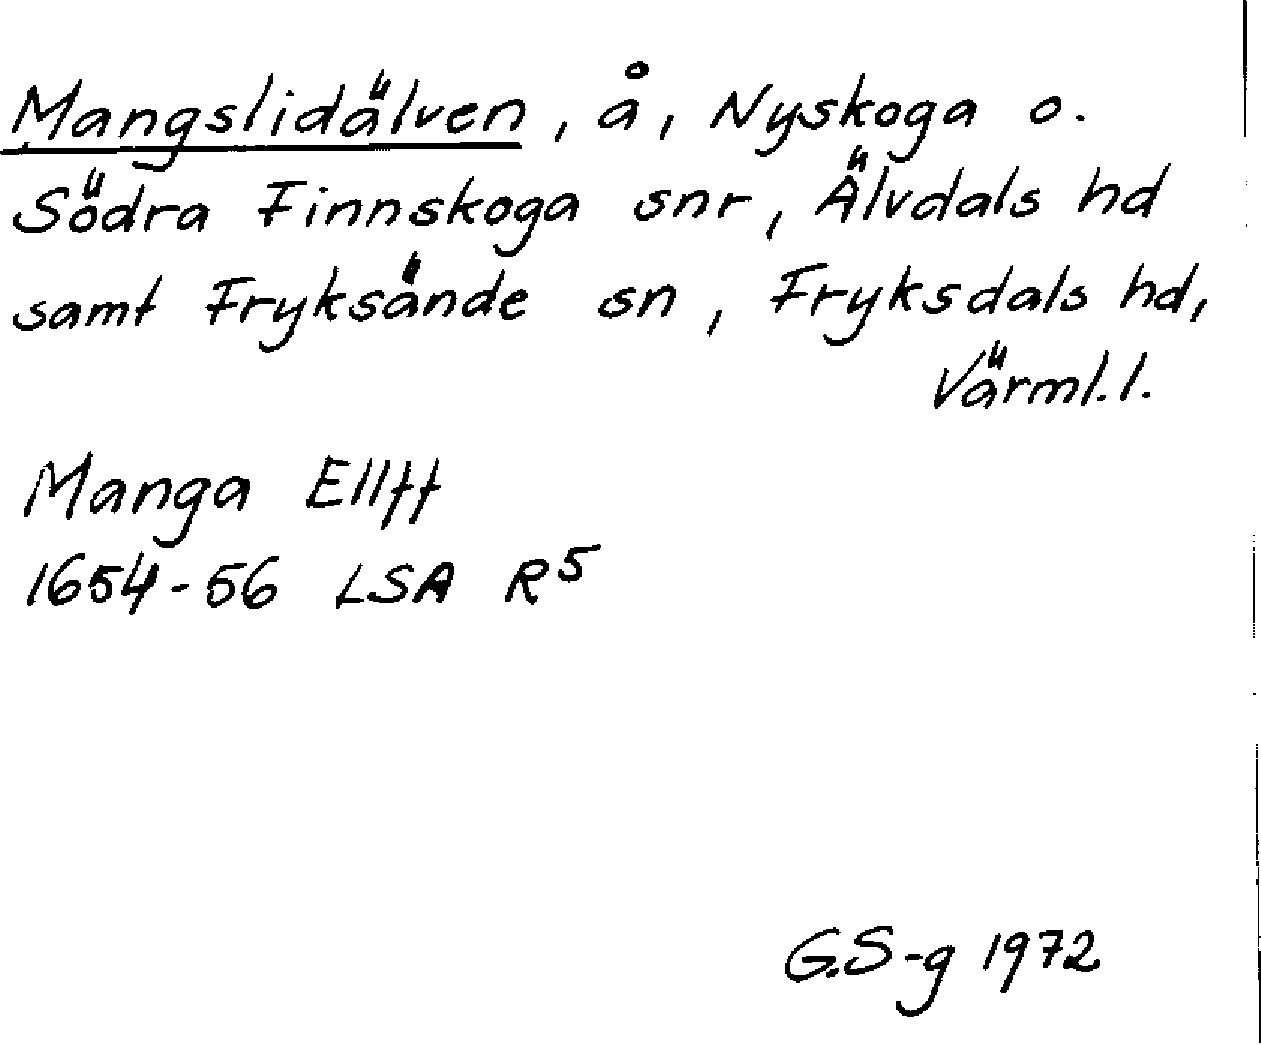 Mangslidälven, å, Nyskoga o.
Södra Finnskoga snr, Älvdals hd
samt Fryksände sn, Fryksdals hd,
Värml. l.
Manga Ellff
1654-56 LSA R5
G.S-g 1972